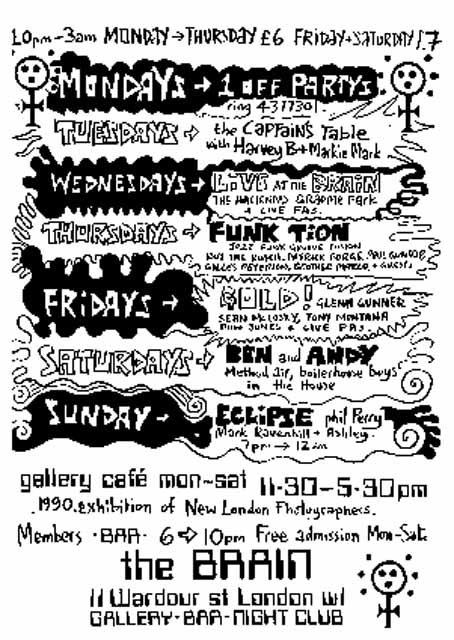 10pm-3am MONDAY→THURSDAY £6 FRIDAY+SATURDAY £7
MONDAYS → 1 OFF PARTYS
ring 4371301
TUESDAYS → the CAPTAINS Table
with Harvey B + Markie Mark
WEDNESDAYS → LiVE AT THE BRAIN
THE HACIENDAS GRAEME Park
+ LIVE P.A.S.
THURSDAYS → FUNK TiON
JAZZ FUNK GROOVE FUSION
PATRICK FORGE, PAUL
GILLES PETERSON, + GUESTS
FRIDAYS → GOLD! GLENN GUNNER
SEAN McLOSKY, TONY MONTANA
PHIL JONES + LIVE PAS.
SATURDAYS → BEN and ANDY
Method air, boilerhouse boys
in the House
SUNDAY → ECLIPSE phil Perry
Mark Ravenhill + Ashley.
7pm → 12
gallery café mon-sat 11·30-5·30pm
1990.exhibition of New London Photographers.
Members ·BAR· 6 → 10pm Free admission Mon-Sat.
the BRAIN
11 Wardour st London w1
GALLERY-BAR-NIGHT CLUB